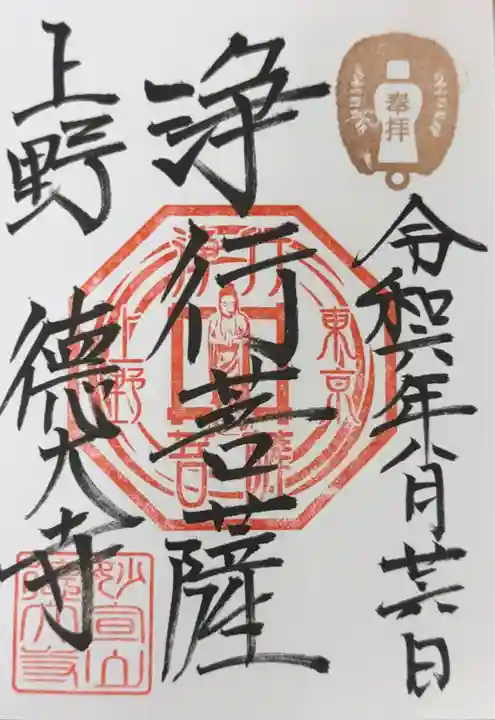 奉拝
令和六年八月廿六日
浄行菩薩
東京
浄行
菩薩
上野
上野 德大寺
妙宣山
德大寺